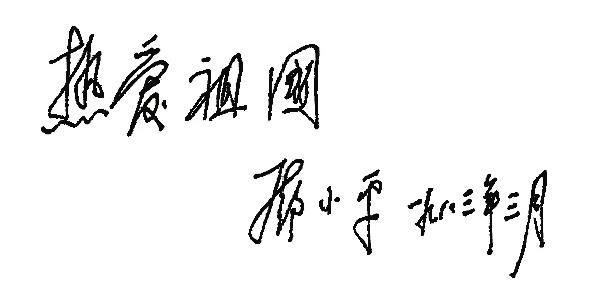 热爱祖國
邓小平 一九八三年三月